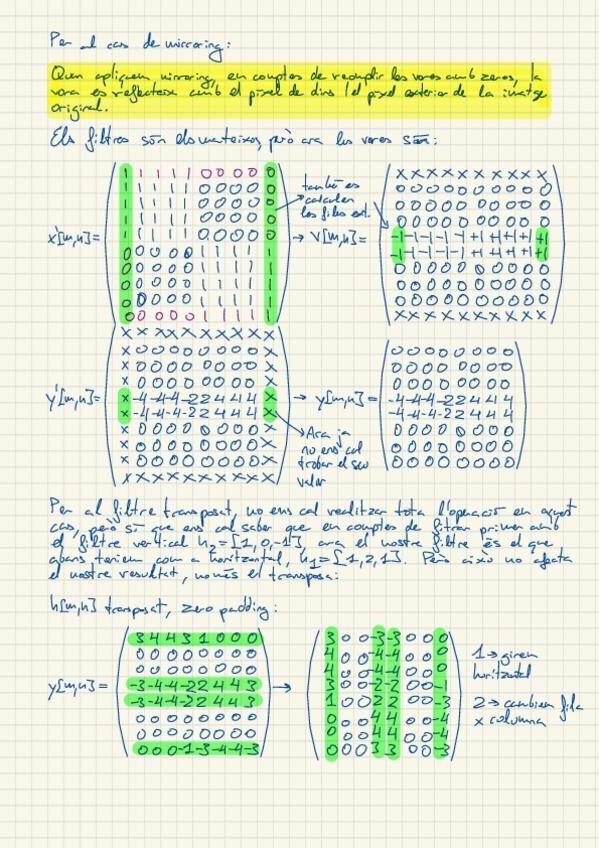 Per al cas de mirroring:
Quan apliquem mirroring, en comptes de reomplir les vores amb zeros, la
vora es reflecteix amb el píxel de dins i el píxel exterior de la imatge
original.
Els filtres són els mateixos, però ara les vores són:
x'[m,n] =
1 1 1 1 1 0 0 0 0 0
1 1 1 1 1 0 0 0 0 0
1 1 1 1 1 0 0 0 0 0
1 1 1 1 1 0 0 0 0 0
1 1 1 1 1 0 0 0 0 0
0 0 0 0 0 1 1 1 1 1
0 0 0 0 0 1 1 1 1 1
0 0 0 0 0 1 1 1 1 1
0 0 0 0 0 1 1 1 1 1
0 0 0 0 0 1 1 1 1 1
també es
calculen
les files ext.
→ V[m,n] =
x x x x x x x x x x
0 0 0 0 0 0 0 0 0 0
0 0 0 0 0 0 0 0 0 0
0 0 0 0 0 0 0 0 0 0
-1 -1 -1 -1 -1 +1 +1 +1 +1 +1
-1 -1 -1 -1 -1 +1 +1 +1 +1 +1
0 0 0 0 0 0 0 0 0 0
0 0 0 0 0 0 0 0 0 0
0 0 0 0 0 0 0 0 0 0
x x x x x x x x x x
y'[m,n] =
x x x x x x x x x x
x 0 0 0 0 0 0 0 0 x
x 0 0 0 0 0 0 0 0 x
x 0 0 0 0 0 0 0 0 x
x -4 -4 -4 -2 2 4 4 4 x
x -4 -4 -4 -2 2 4 4 4 x
x 0 0 0 0 0 0 0 0 x
x 0 0 0 0 0 0 0 0 x
x 0 0 0 0 0 0 0 0 x
x x x x x x x x x x
→ Ara ja
no ens cal
trobar el seu
valor
→ y[m,n] =
0 0 0 0 0 0 0 0
0 0 0 0 0 0 0 0
0 0 0 0 0 0 0 0
-4 -4 -4 -2 2 4 4 4
-4 -4 -4 -2 2 4 4 4
0 0 0 0 0 0 0 0
0 0 0 0 0 0 0 0
0 0 0 0 0 0 0 0
Per al filtre transposat, no ens cal realitzar tota l'operació en aquest
cas, però sí que ens cal saber que en comptes de fitrar primer amb
el filtre vertical h₂=[1,0,-1], ara el nostre filtre és el que
abans teníem com a horitzontal, h₁=[1,2,1]. Però això no afecta
el nostre resultat, només el transposa:
h[m,n] transposat, zero padding:
y[m,n] =
3 4 4 3 1 0 0 0
0 0 0 0 0 0 0 0
0 0 0 0 0 0 0 0
-3 -4 -4 -2 2 4 4 3
-3 -4 -4 -2 2 4 4 3
0 0 0 0 0 0 0 0
0 0 0 0 0 0 0 0
0 0 0 -1 -3 -4 -4 -3
→
3 0 0 -3 -3 0 0 0
4 0 0 -4 -4 0 0 0
4 0 0 -4 -4 0 0 0
3 0 0 -2 -2 0 0 -1
1 0 0 2 2 0 0 -3
0 0 0 4 4 0 0 -4
0 0 0 4 4 0 0 -4
0 0 0 3 3 0 0 -3
1→ girem
horitzotal
2→ canbiem fila
x columna